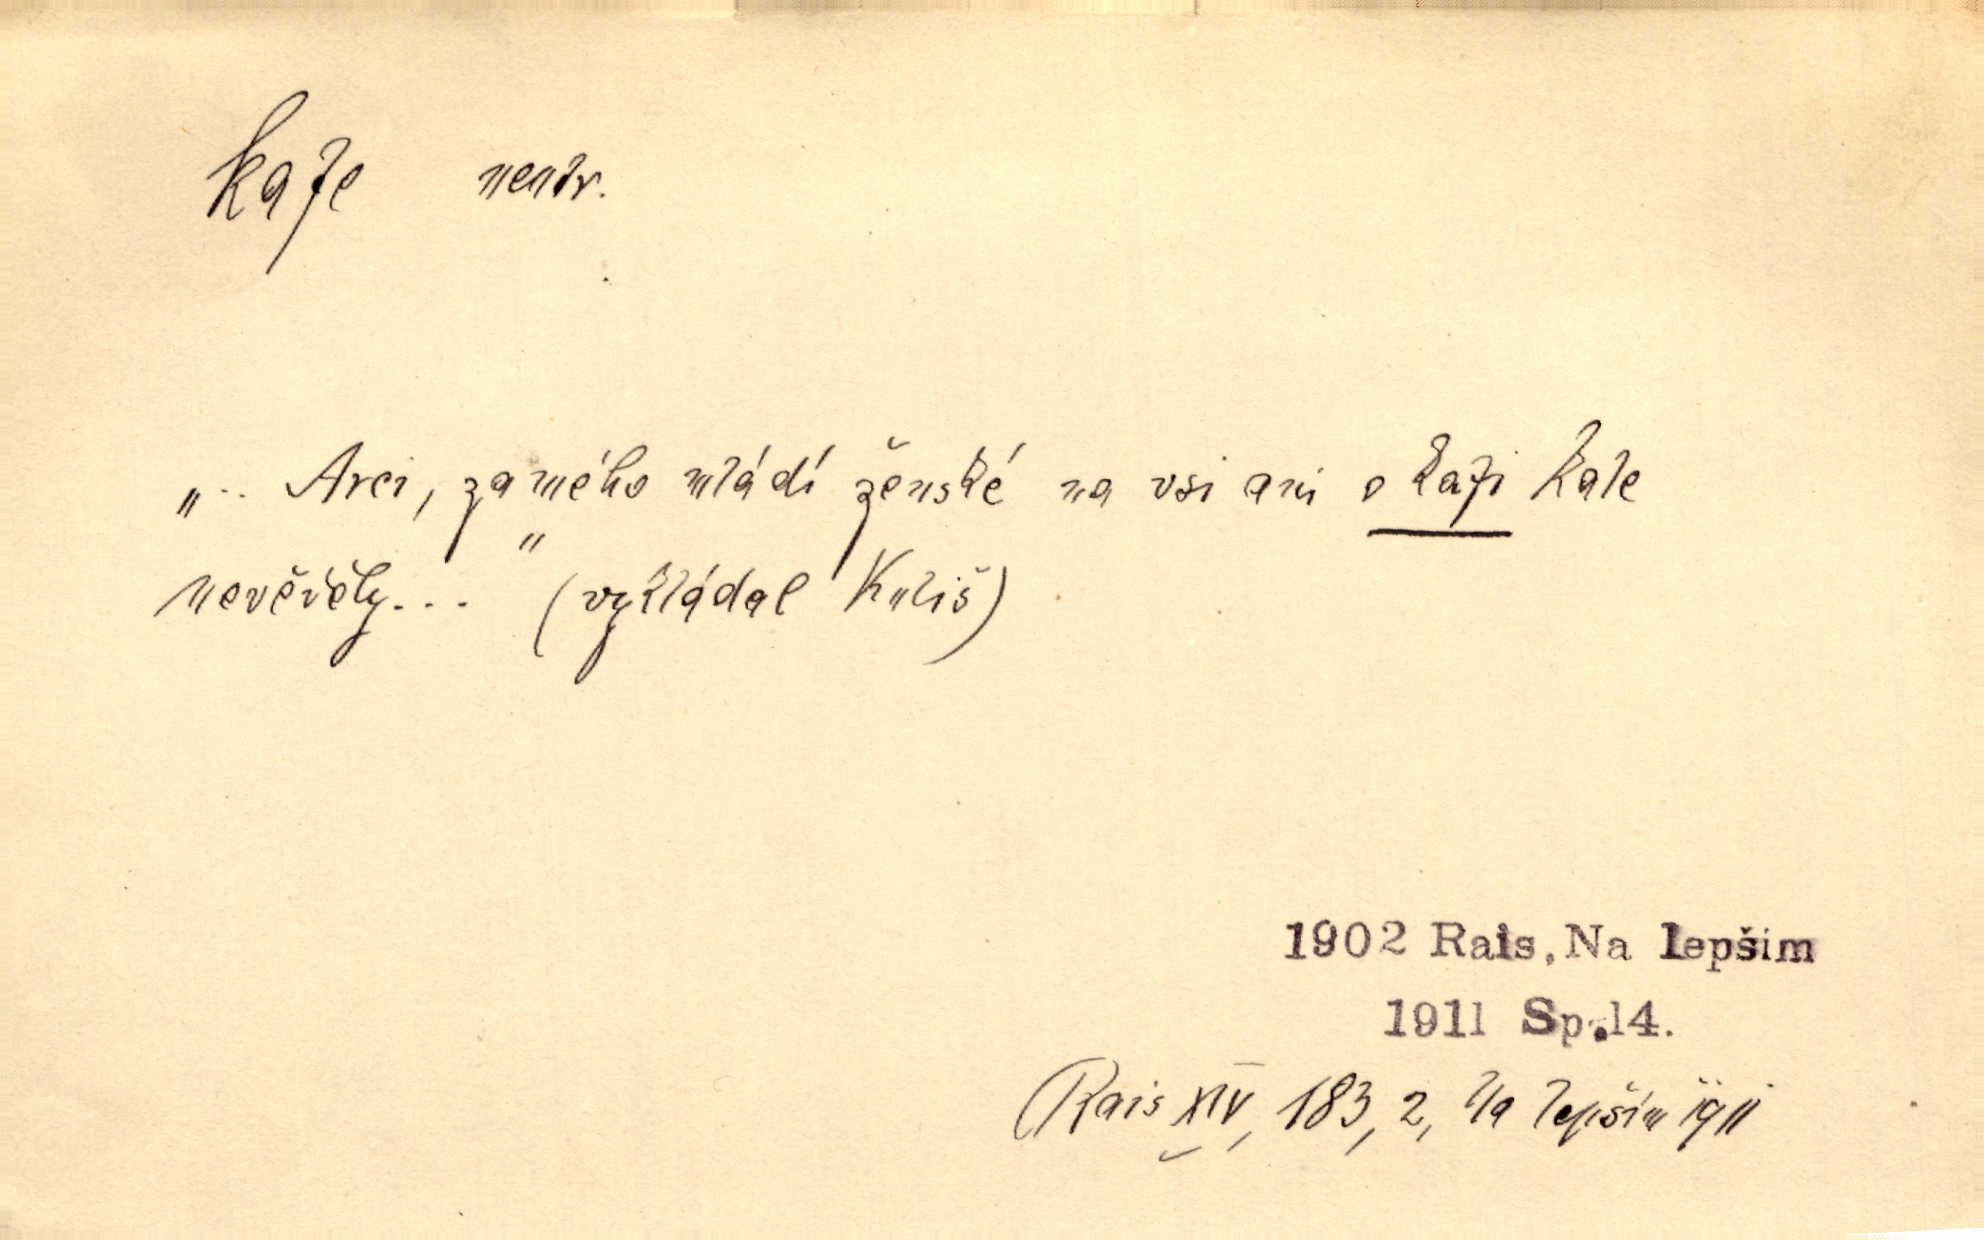 kafe neutr.
„.. Arci, za mého mládí ženské na vsi ani o kafi kale
nevěděly..." (vykládal Kuliš)
1902 Rais, Na lepším
1911 Sp.14.
(Rais XIV, 183, 2, Na lepším 1911